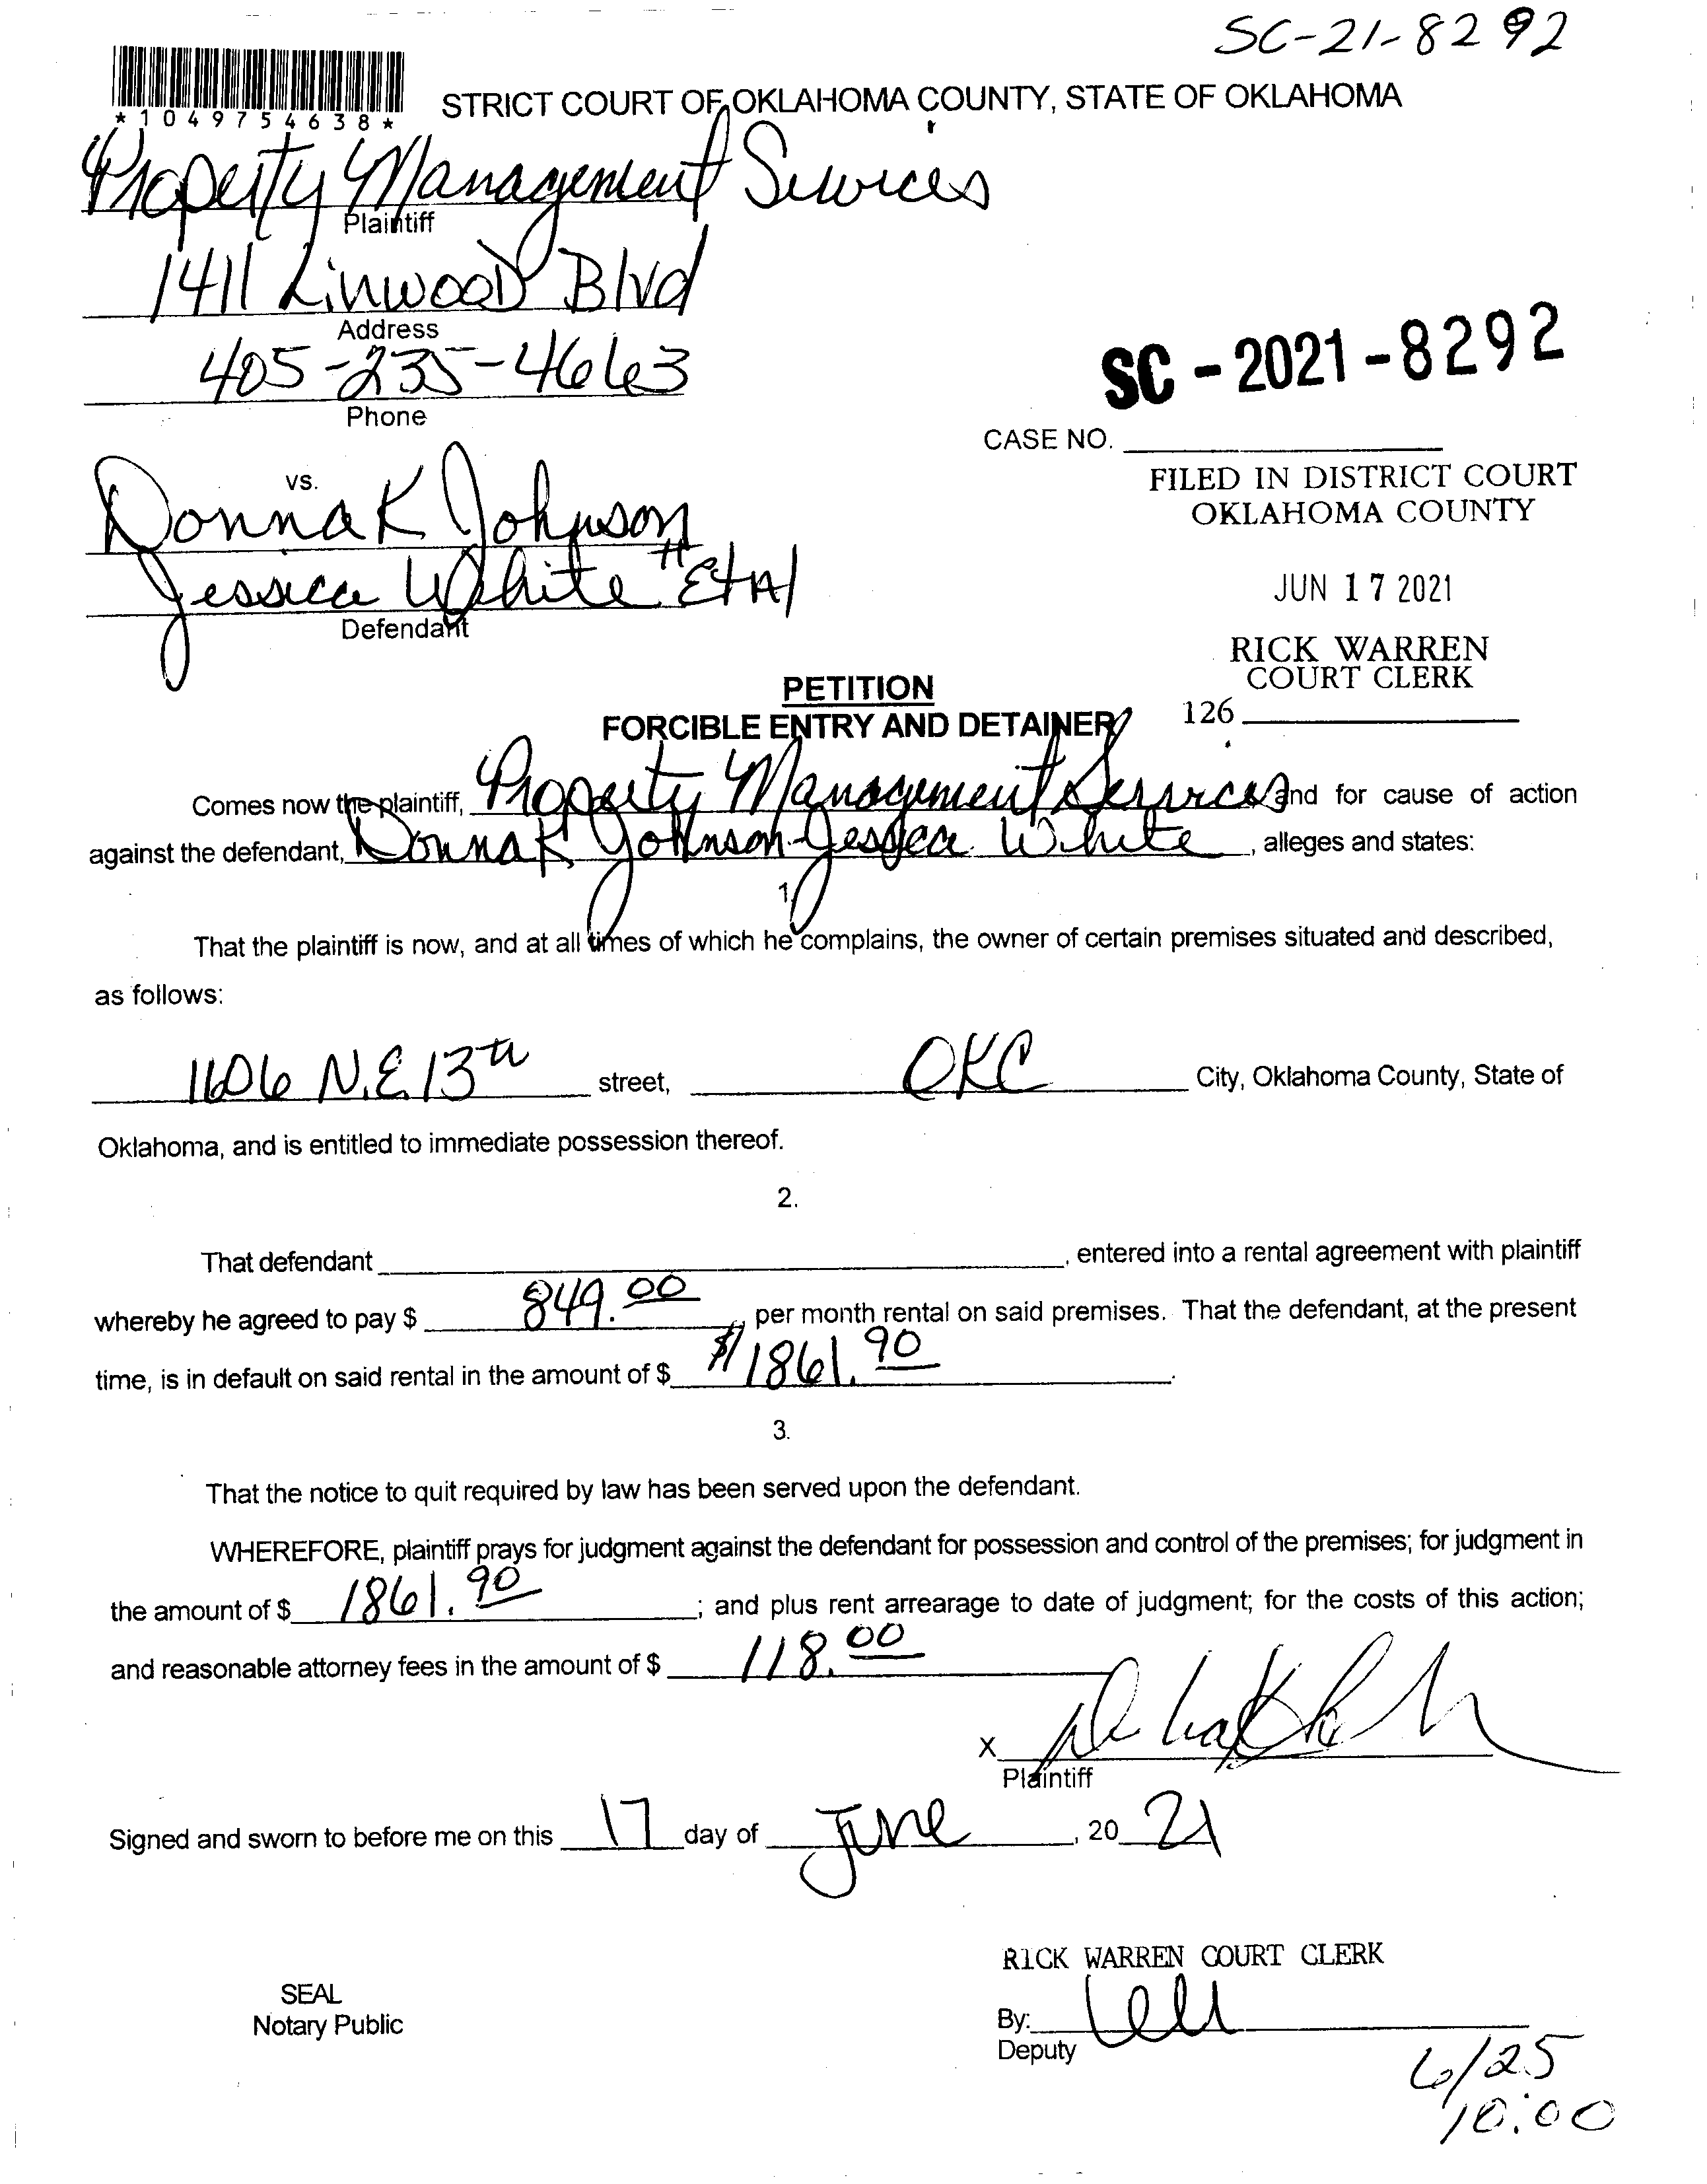 SC-21-8292
*1049754638*
STRICT COURT OF OKLAHOMA COUNTY, STATE OF OKLAHOMA
Property Management Services
Plaintiff
1411 Linwood Blvd
Address
405-235-4663
Phone
SC-2021-8292
CASE NO.
vs.
Donna K Johnson
Jessica White "Et Al
Defendant
FILED IN DISTRICT COURT
OKLAHOMA COUNTY
JUN 17 2021
RICK WARREN
COURT CLERK
126
PETITION
FORCIBLE ENTRY AND DETAINER
Comes now the plaintiff, Property Management Services and for cause of action
against the defendant, Donna K Johnson-Jessica White, alleges and states:
1.
That the plaintiff is now, and at all times of which he complains, the owner of certain premises situated and described,
as follows:
1606 N.E. 13th street, OKC City, Oklahoma County, State of
Oklahoma, and is entitled to immediate possession thereof.
2.
That defendant , entered into a rental agreement with plaintiff
whereby he agreed to pay $ 849.00, per month rental on said premises. That the defendant, at the present
time, is in default on said rental in the amount of $ $1861.90.
3.
That the notice to quit required by law has been served upon the defendant.
WHEREFORE, plaintiff prays for judgment against the defendant for possession and control of the premises; for judgment in
the amount of $ 1861.90; and plus rent arrearage to date of judgment; for the costs of this action;
and reasonable attorney fees in the amount of $ 118.00
X
Plaintiff
Signed and sworn to before me on this 17 day of June, 20 21
RICK WARREN COURT CLERK
SEAL
Notary Public
By:
Deputy
6/25
10:00